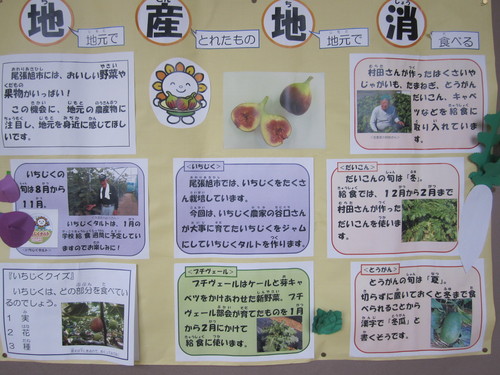 地産地消
地元で
とれたもの
地元で
食べる
尾張旭市には、おいしい野菜や
果物がいっぱい!
この機会に、地元の農産物に
注目し、地元を身近に感じてほし
いです。
村田さんが作ったはくさいや
じゃがいも、たまねぎ、とうがん
だいこん、キャベ
ツなどを給食に
取り入れていま
す。
いちじくの
旬は8月から
11月。
いちじくタルトは、1月の
学校給食週間に予定してい
ますのでお楽しみに!
<いちじく>
尾張旭市では、いちじくをたくさ
ん栽培しています。
今回は、いちじく農家の谷口さん
が大事に育てたいちじくをジャム
にしていちじくタルトを作ります。
<だいこん>
だいこんの旬は「冬」。
給食では、12月から2月まで
村田さんが作った
だいこんを使いま
す。
『いちじくクイズ』
いちじくは、どの部分を食べてい
るのでしょう。
1 実
2 花
3 種
<プチヴェール>
プチヴェールはケールと芽キャ
ベツをかけあわせた新野菜。プチ
ヴェール部会が育てたものを1月
から2月にかけて
給食に使います。
<とうがん>
とうがんの旬は「夏」。
切らずに置いておくと冬まで食
べられることから
漢字で「冬瓜」と
書くそうです。